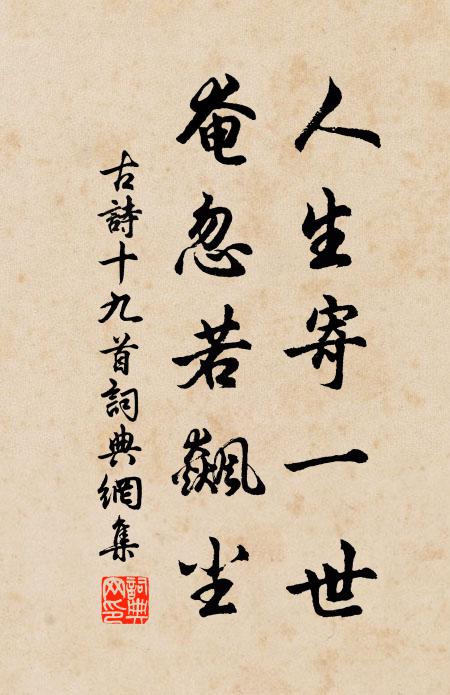 人生寄一世
奄忽若飆尘
古詩十九首詞典網集
詞典網印